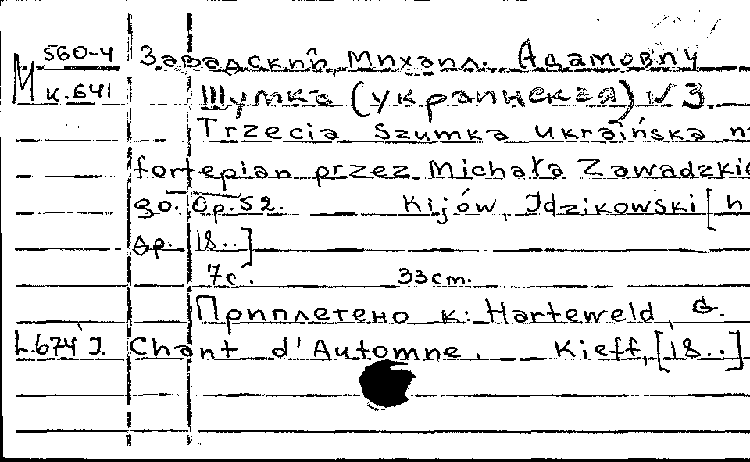 М 560-4 Завадский, Михаил Адамович
к.641 Шумка (украинская) № 3.
Trzecia szumka ukraińska n
fortepian przez Michała Zawadzkie
go. Op.52. Kijów, Idzikowski [н
др. 18..]
7с. 33cm.
Приплетено к: Harteweld, G.
L674 I. Chant d'Automne. Kieff, [18..]